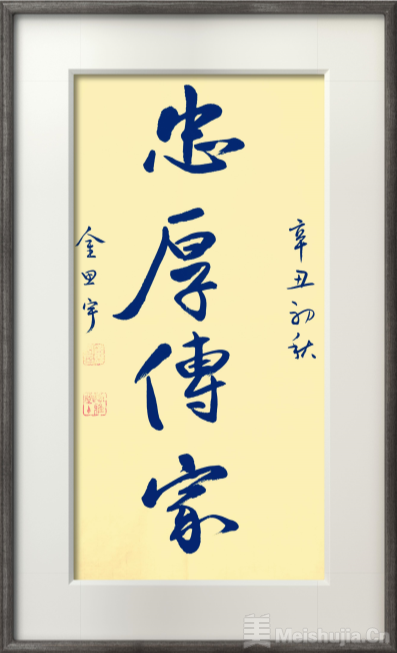 辛丑初秋
忠厚傳家
金思宇
美 Meishujia.Cn